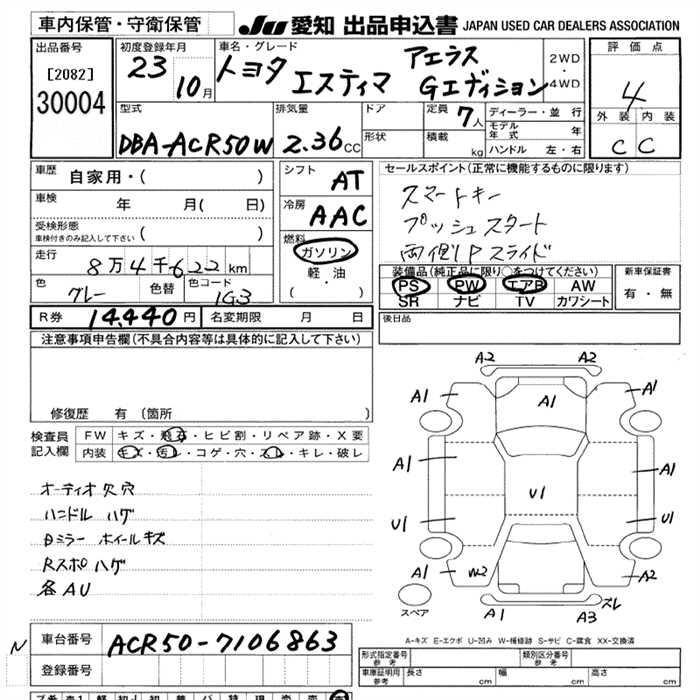 車内保管・守衛保管
JU 愛知 出品申込書 JAPAN USED CAR DEALERS ASSOCIATION
出品番号
[2082]
30004
初度登録年月
23
10月
車名・グレード
トヨタ エスティマ
アエラス
Gエディション
2WD
・
4WD
評価点
4
外装 内装
C C
型式
DBA-ACR50W
排気量
2.36 CC
ドア
形状
定員 7人
積載 kg
ディーラー・並行
モデル年式 年
ハンドル 左・右
車歴 自家用・( )
車検 年 月( 日)
受検形態
車検付きのみ記入して下さい ( )
走行
8万4千622km
色 グレー
色替
色コード
1G3
シフト
AT
冷房
AAC
燃料
ガソリン
・
軽・油
( ・ )
セールスポイント(正常に機能するものに限ります)
スマートキー
プッシュスタート
両側Pスライド
装備品(純正品に限り○をつけてください)
PS PW エアB AW
SR ナビ TV カワシート
新車保証書
有・無
R券 14,440円
名変期限 月 日
後日品
注意事項申告欄(不具合内容等は具体的に記入して下さい)
修復歴 有 (箇所 )
検査員
記入欄
FW キズ・飛石・ヒビ割・リペア跡・X要
内装 キズ・汚レ・コゲ・穴・スレ・キレ・破レ
オーディオ欠穴
ハンドル ハゲ
Bミラー ホイールキズ
Rスポハゲ
各AU
A2 A2
A1 A1 A1
A1 A1
U1
U1 U1
A1 W2 A2
A1 A3 ズレ
スペア
A-キズ E-エクボ U-凹み W-補修跡 S-サビ C-腐食 XX-交換済
N
車台番号 ACR50-7106863
登録番号
形式指定番号
参考
類別区分番号
参考
車庫証明用
参考
長さ cm 幅 cm 高さ cm